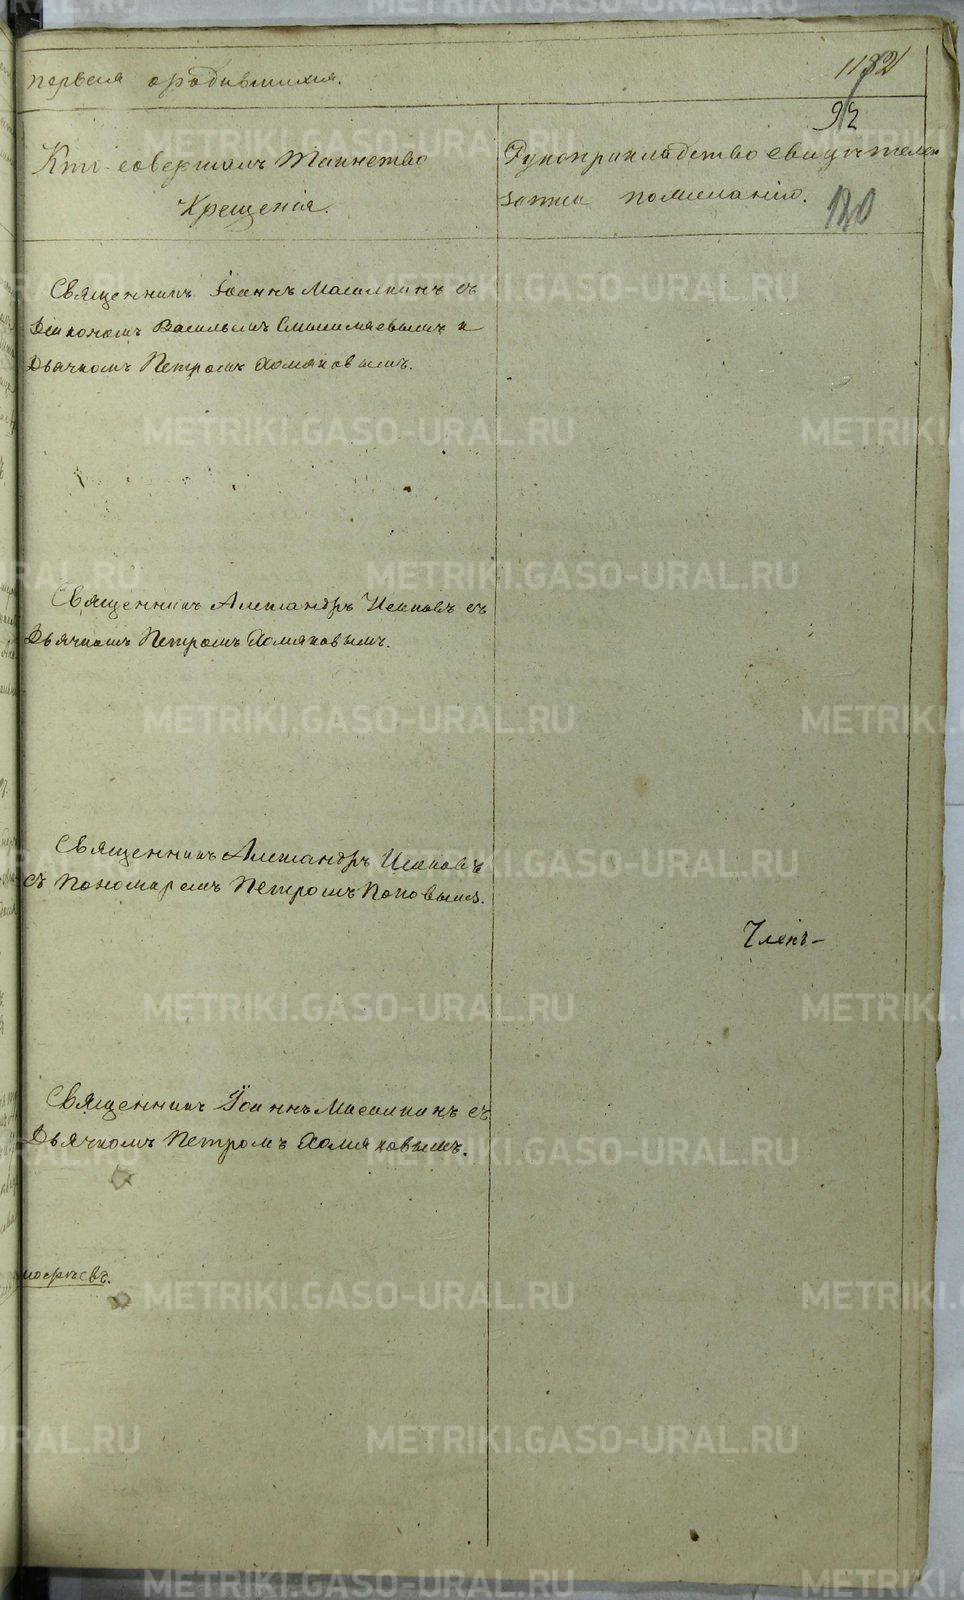 первая о родившихся.
1182
92
120
Кто совершалъ Таинство
Крещенія.
Рукоприкладство свидѣтелей
записи по желанію.
Священникъ Іоаннъ Масалкинъ съ
Діакономъ Васильемъ и
Дьячкомъ Петромъ Хомяковымъ.
Священникъ Александръ Исаковъ съ
Дьячкомъ Петромъ Хомяковымъ.
Священникъ Александръ Исаковъ
съ Пономаремъ Петромъ Поповымъ.
Членъ-
Священникъ Іоаннъ Масалкинъ съ
Дьячкомъ Петромъ Хомяковымъ.
METRIKI.GASO-URAL.RU